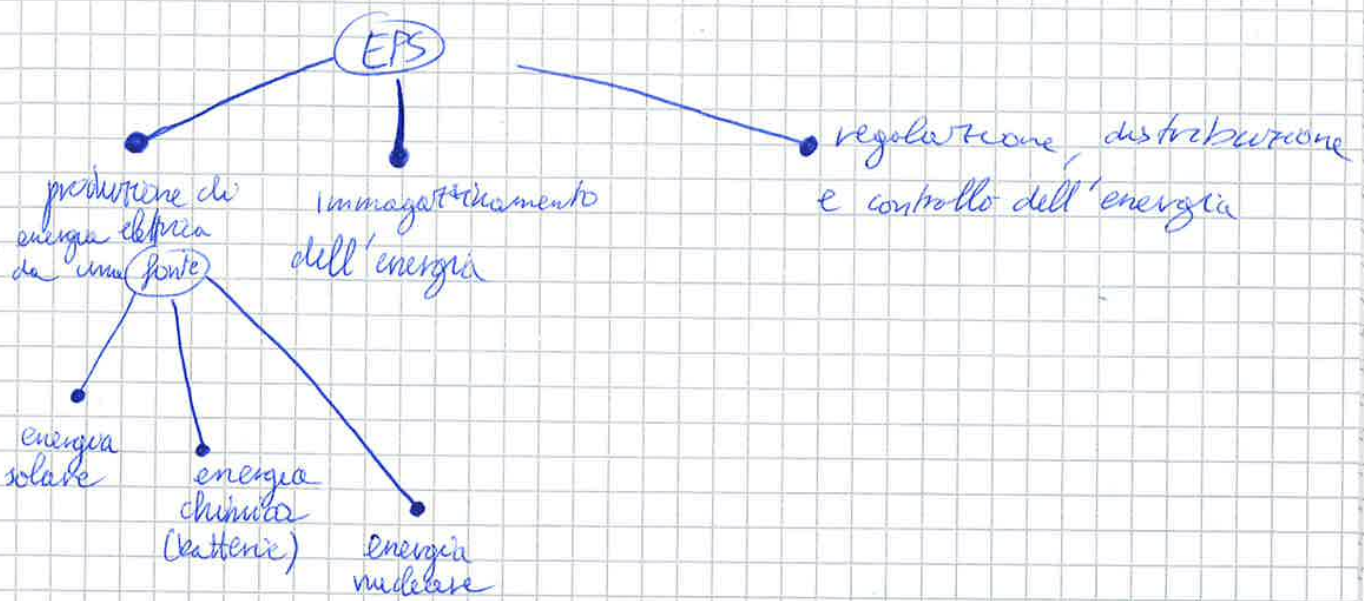 EPS
produzione di
energia elettrica
da una fonte
immagazzinamento
dell'energia
regolazione, distribuzione
e controllo dell'energia
energia
solare
energia
chimica
(batterie)
energia
nucleare